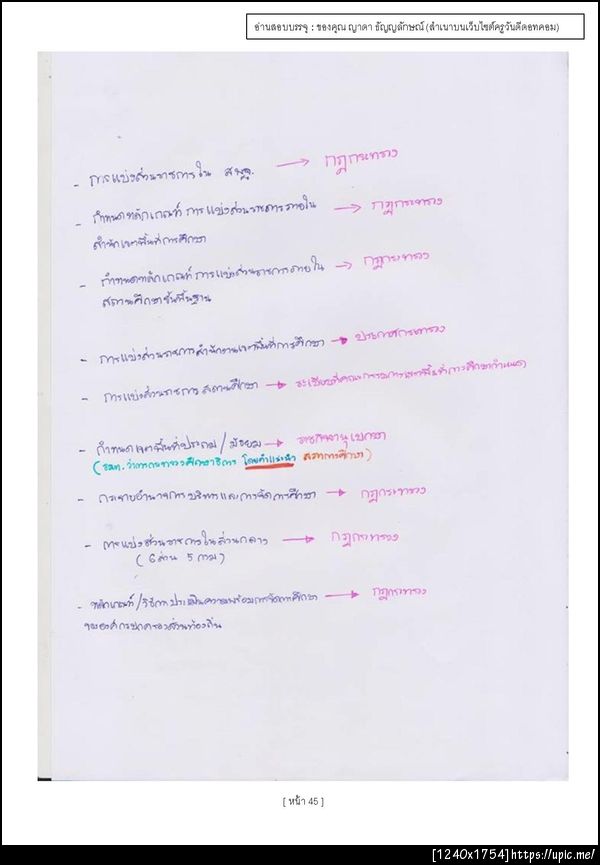 อ่านสอบบรรจุ : ของคุณ ญาดา ธัญญลักษณ์ (สำเนาบนเว็บไซต์ครูวันดีดอทคอม)
- การแบ่งส่วนราชการใน สพฐ. → กฎกระทรวง
- กำหนดหลักเกณฑ์ การแบ่งส่วนราชการภายใน → กฎกระทรวง
สำนักเขตพื้นที่การศึกษา
- กำหนดหลักเกณฑ์การแบ่งส่วนราชการภายใน → กฎกระทรวง
สถานศึกษาขั้นพื้นฐาน
- การแบ่งส่วนราชการสำนักงานเขตพื้นที่การศึกษา → ประกาศกระทรวง
- การแบ่งส่วนราชการสถานศึกษา → ระเบียบที่คณะกรรมการเขตพื้นที่การศึกษากำหนด
- กำหนดเขตพื้นที่ประถม / มัธยม →
(รมต. ว่าการกระทรวงศึกษาธิการ โดยคำแนะนำ สภาการศึกษา)
- กระจายอำนาจการบริหารและการจัดการศึกษา → กฎกระทรวง
- การแบ่งส่วนราชการในส่วนกลาง → กฎกระทรวง
- หลักเกณฑ์/วิธีการประเมินความพร้อมการจัดการศึกษา → กฎกระทรวง
ขององค์กรปกครองส่วนท้องถิ่น
[ หน้า 45 ]
[1240x1754]https://upic.me/